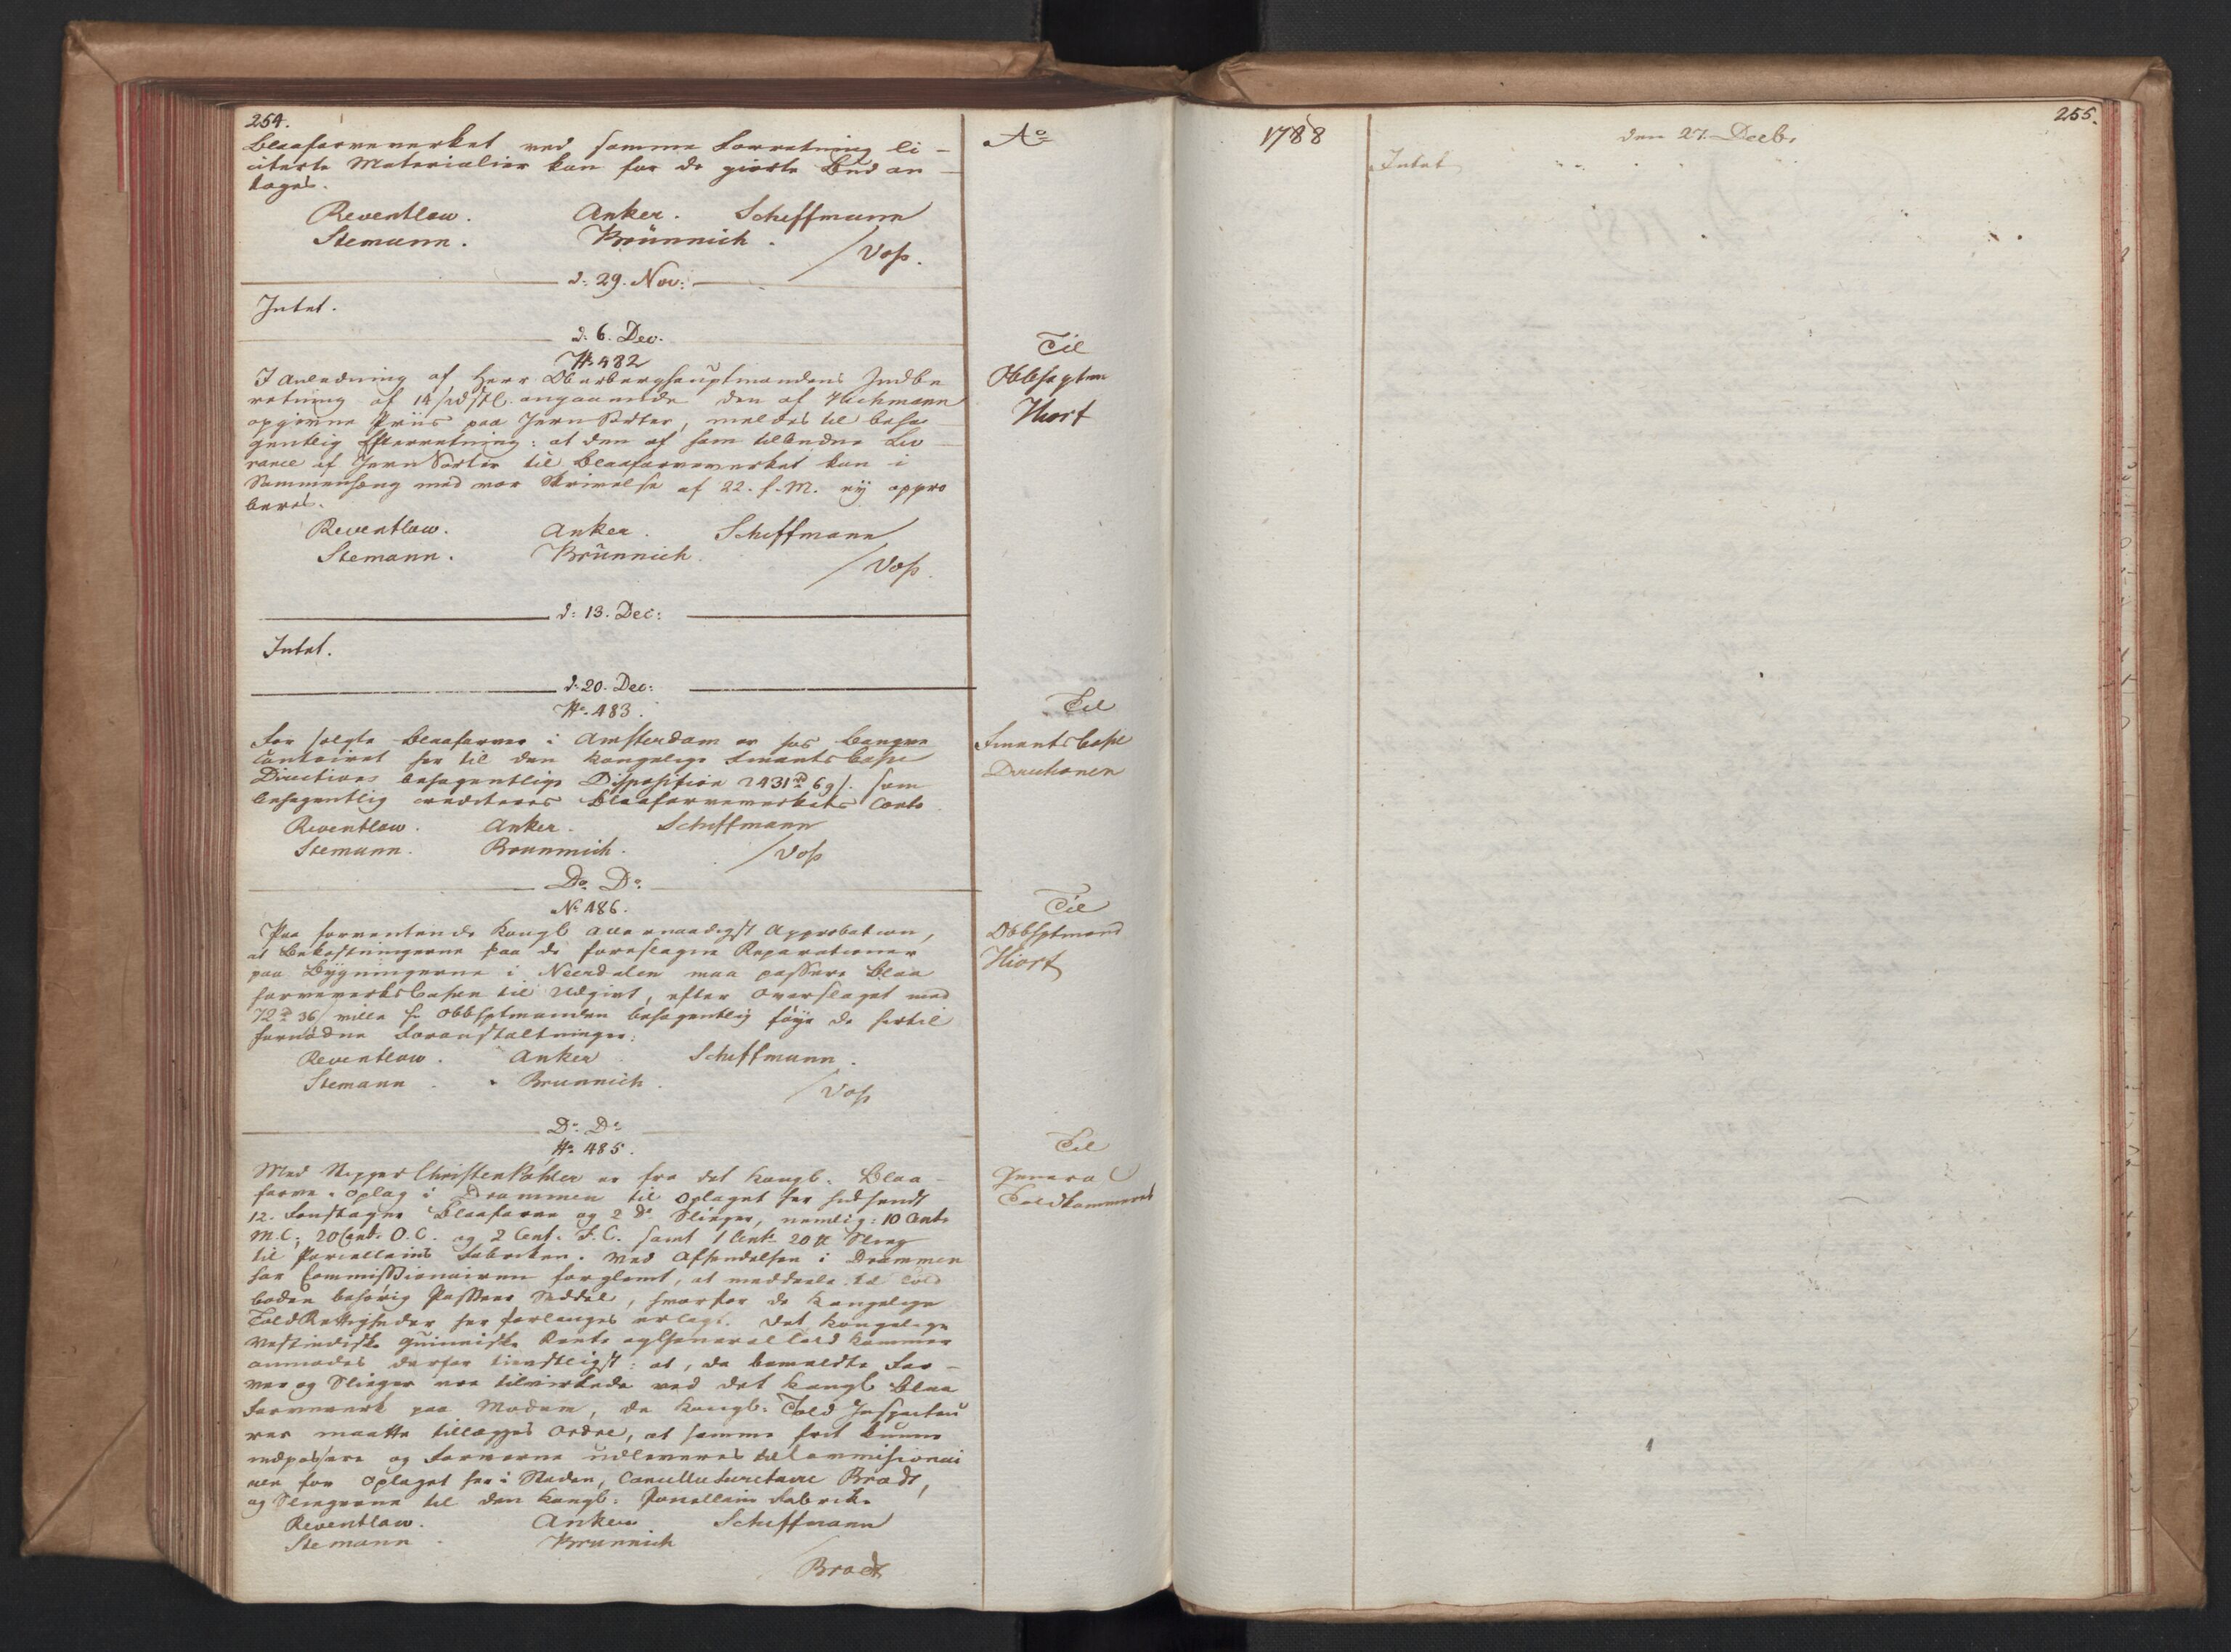 254.
Blaafarveverket ved samme Forretning li-
citerte Materialier kan for de giorte Bud an-
tages.
Reventlow. Anker. Schiffmann
Stemann. Brünnich. /Voss.
d: 29. Nov:
Intet.
d. 6. Dec.
No 482
I Anledning af Herr Oberberghauptmandens Indbe
retning af angaaende den af Heckmann
opgivne Priis paa Jern Sorter, meldes til behø
gentlig Efterretning: at den af ham tilbudne Lev
rance af Jern Sorter til Blaafarveverket kan i
Sammenhæng med vor Skrivelse af 22. f. M. ey appro
beres.
Reventlow. Anker. Schiffmann
Stemann. Brünnich. /Voss.
d: 13. Dec:
Intet.
d. 20. Dec:
No. 483.
For solgte Blaafarver i Amsterdam er hos Banque
Contoiret her til den Kongelige Finants Casse
Directions behagentlige Disposition 2431 rd 69 s. som
behagentlig crediteres Blaafarveverkets Conto
Reventlow. Anker. Schiffmann
Stemann. Brünnich. /Voss
Do Do.
No 486.
Paa forventende Kongl allernaadigst Approbation,
at Bekostningerne paa de foreslagne Reparationer
paa Bygningerne i Neerdalen maa passere Blaa
farveverks Cassen til Udgivt, efter Overslaget med
72 rd 36 s ville Hr Obbhptmanden behagentlig føye de hertil
fornødne Foranstaltninger.
Reventlow. Anker. Schiffmann.
Stemann. Brünnich. /Voss
Do. Do
No. 485.
Med Skipper Christen Pahler er fra det Kongl. Blaa-
farve-Oplag i Drammen til Oplaget her hidsendt
12. Fustager Blaafarve og 2 do Slieger, nemlig: 10 Cent.
M.C; 20 Cent. O.C. og 2 Cent. F.C. samt 1 Cent. 20 ℔ Slieg
til Porcellains Fabriken. Ved Afsendelsen i Drammen
har Commissionairen forglemt, at meddeele til Told
boden behørig Passeer Seddel, hvorfor de Kongelige
Told Rettigheder her forlanges erlagt. Det Kongelige
Vestindiske Guineiske Rente og General Told Kammer
anmodes derfor tienstligst: at, da bemeldte Far-
ver og Slieger ere tilvirkede ved det Kongl Blaa
Farveverk paa Modum, de Kongl. Told Inspecteu
rer maatte tillægges Ordre, at samme frit kunne
indpassere og Farverne udleveres til Commissionai
ren for Oplaget her i Staden, Cancellie Secretaire Bradt,
og Sliegerne til den Kongl. Porcellains Fabrik.
Reventlow. Anker Schiffmann
Stemann. Brünnich
/Bradt
Ao
Til
Obbhaptm
Hiort
Til
Finants Casse
Directionen
Til
Obbhptmand
Hiort
Til
General
Toldkammeret
1788
255.
den 27. Decbr
Intet